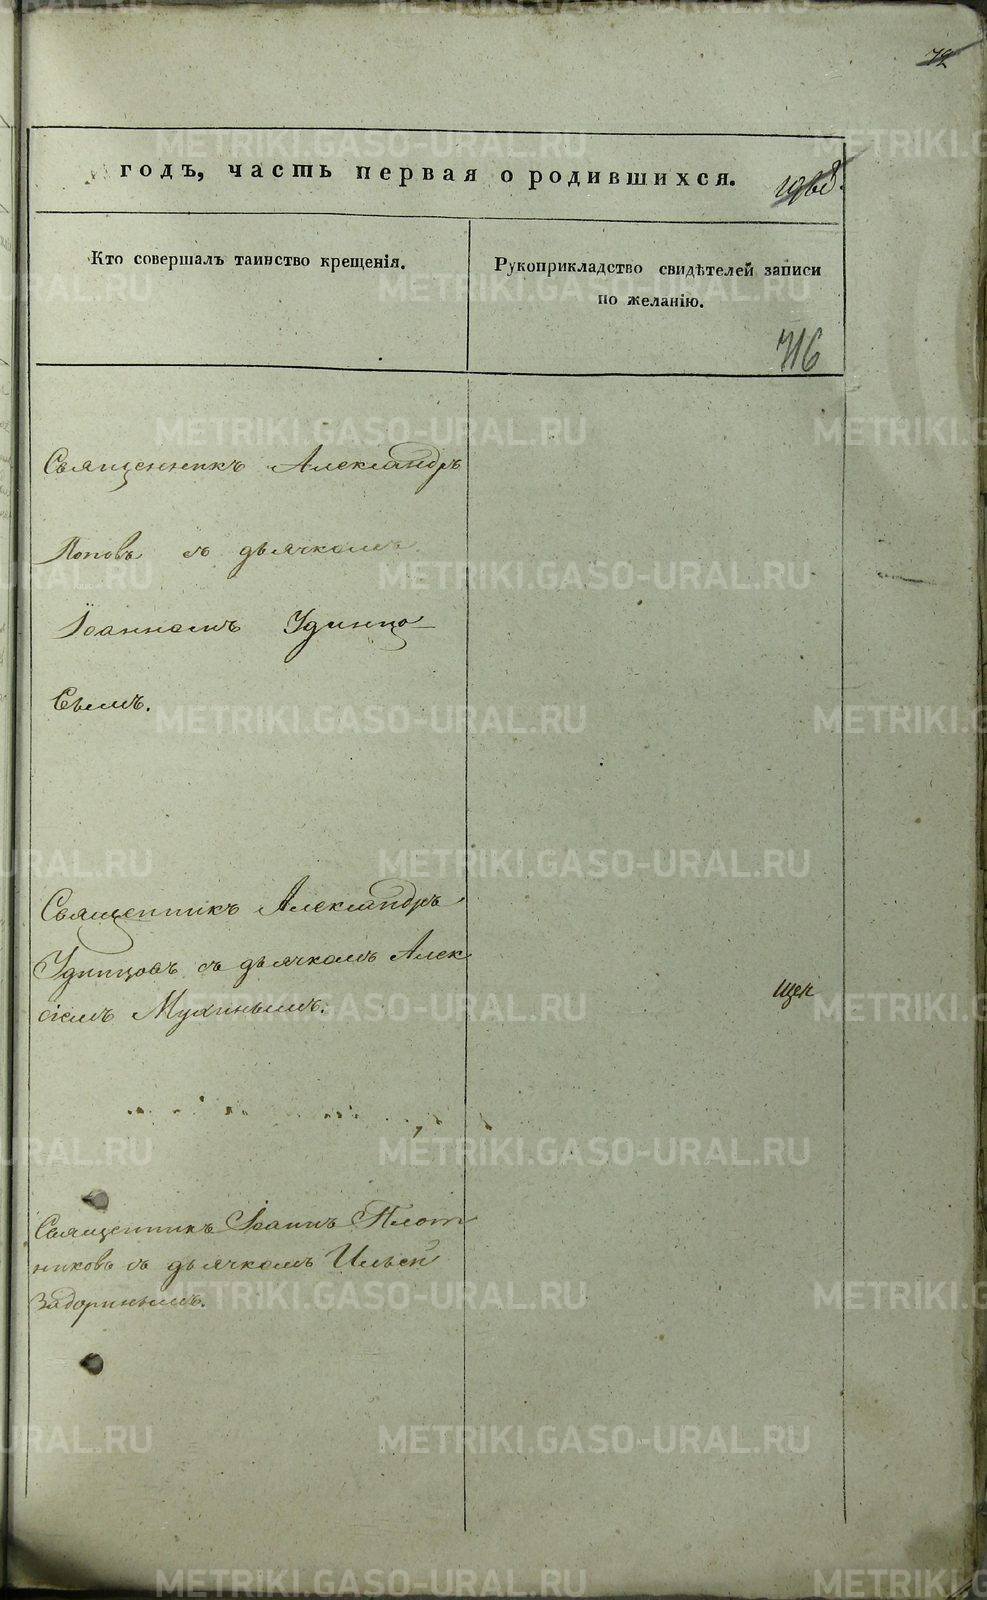 годъ, часть первая о родившихся.
Кто совершалъ таинство крещенія.
Рукоприкладство свидѣтелей записи
по желанію.
716
Священникъ Александръ
Поповъ съ дьячкомъ
Іоанномъ Удинцо
вымъ.
Священникъ Александръ
Удинцовъ съ дьячкомъ Алек
сіемъ Мухинымъ.
Священникъ Іоаннъ Плот
никовъ съ дьячкомъ Ильей
Задоринымъ.
METRIKI.GASO-URAL.RU